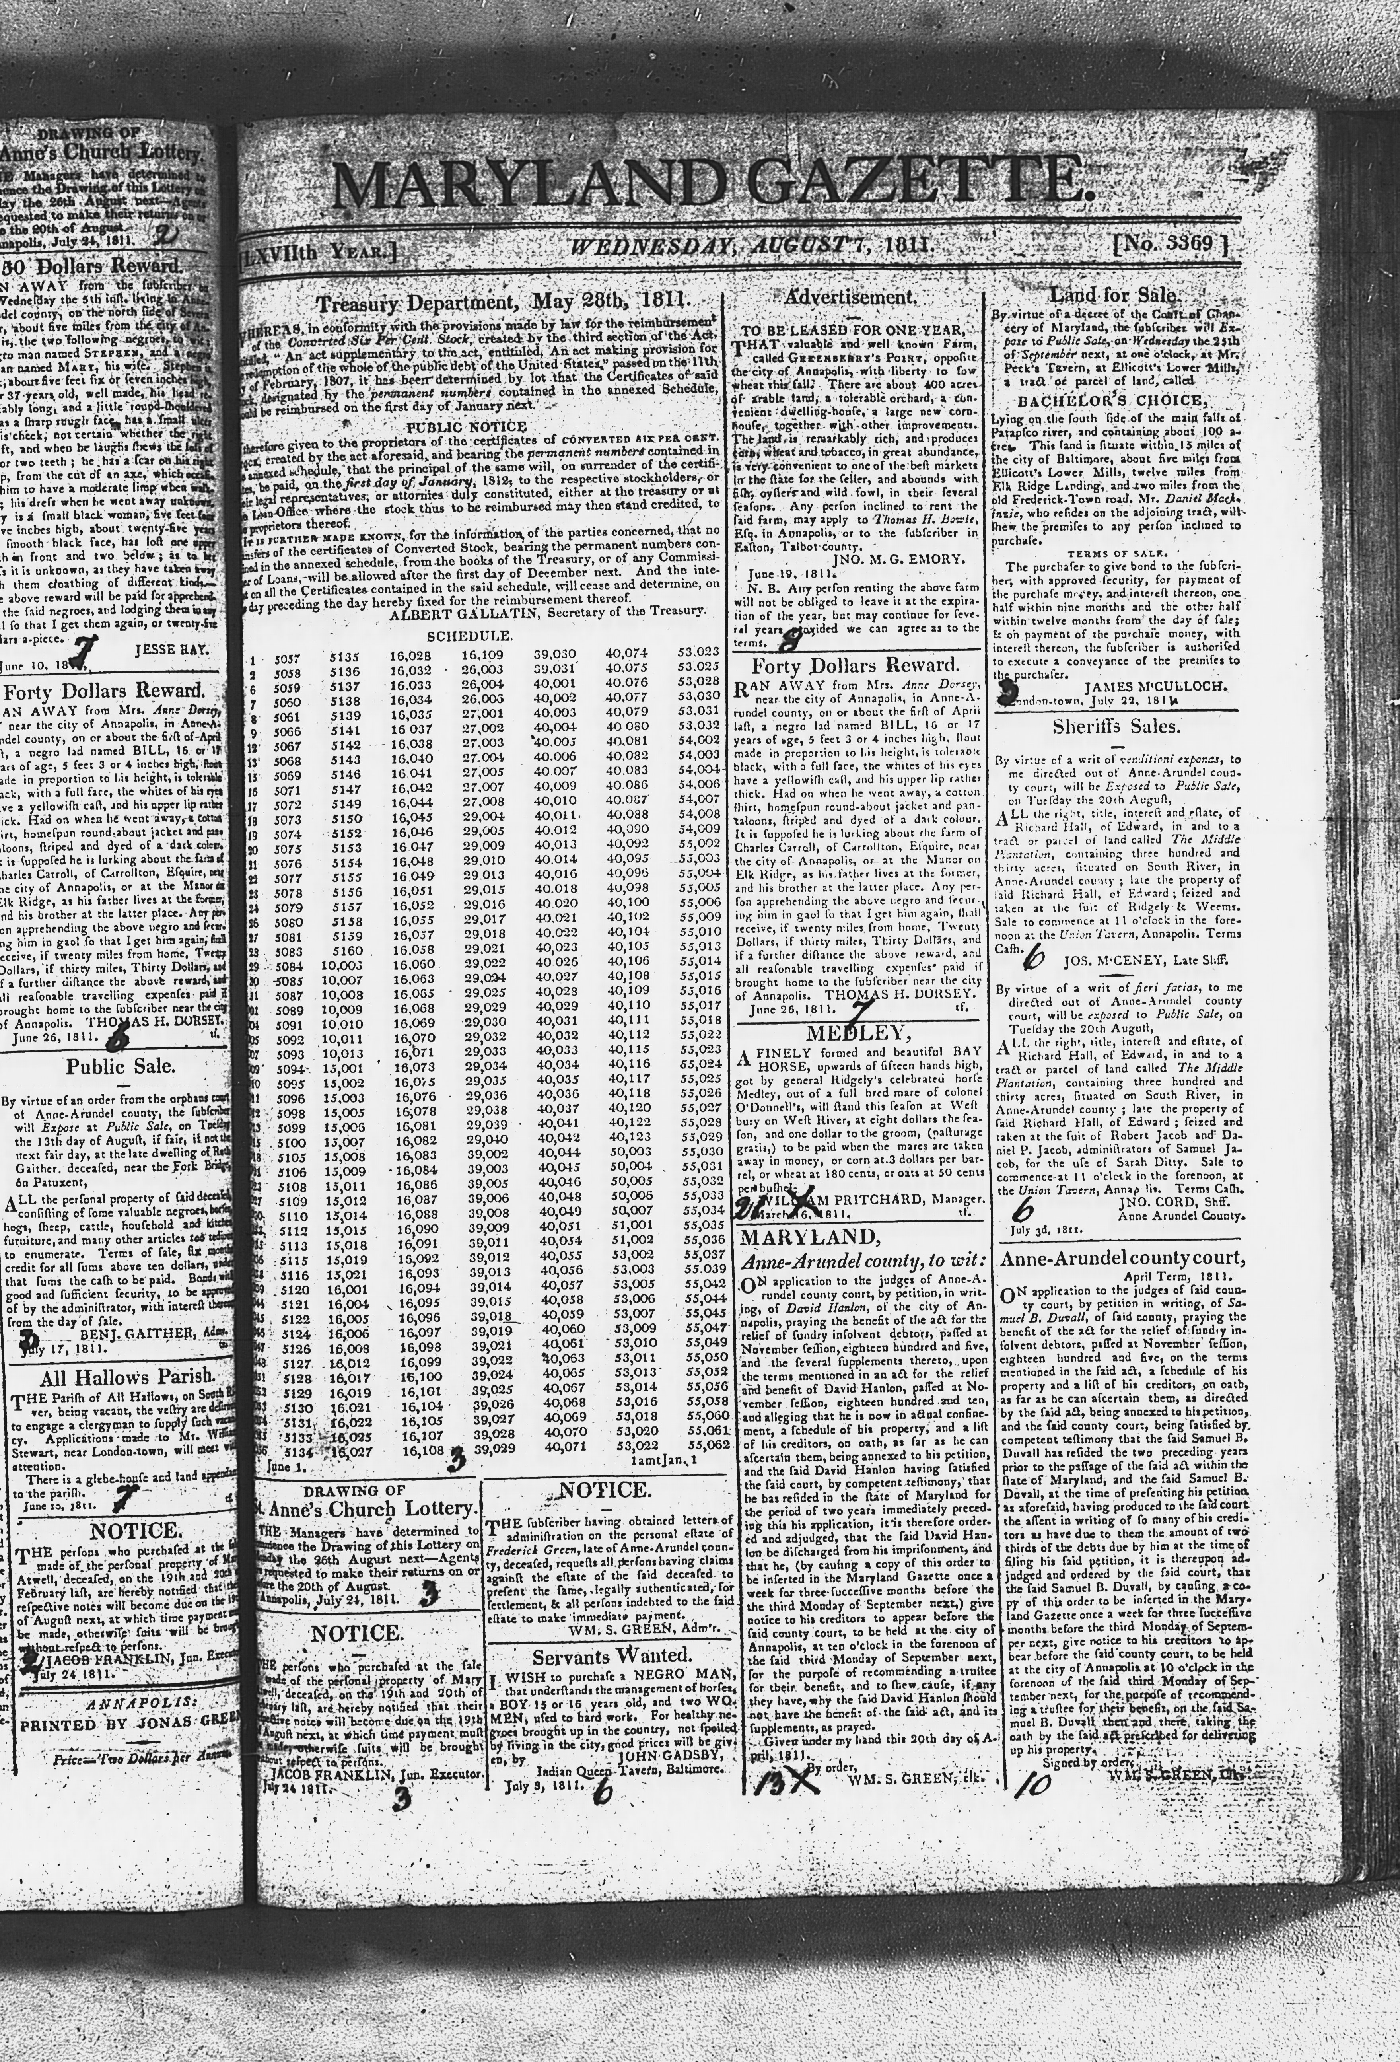 DRAWING OF
Anne's Church Lottery.
Managers have determined to
the Drawing of this Lottery on
the 26th August next—Agents
requested to make their returns on or
the 20th of August.
July 24, 1811. 2
50 Dollars Reward.
AWAY from the subscriber
Wednesday the 5th inst. living in
county, on the north side of Severn
about five miles from the city of
the two following negroes, to wit:
man named STEPHEN, and a
named MARY, his wife. Stephen is
about five feet six or seven inches high,
37 years old, well made, his head
long, and a little round-shouldered
a sharp rough face, has a small
cheek; not certain whether the right
and when he laughs shews the loss of
or two teeth; he has a scar on his right
from the cut of an axe, which
him to have a moderate limp when
his dress when he went away unknown.
is a small black woman, five feet
inches high, about twenty-five years
smooth black face, has lost one upper
in front and two below; as to her
it is unknown, as they have taken away
them cloathing of different kinds.—
above reward will be paid for
the said negroes, and lodging them in any
so that I get them again, or twenty-five
a-piece.
JESSE RAY.
June 10. 7
Forty Dollars Reward.
AWAY from Mrs. Anne Dorsey,
near the city of Annapolis, in Anne-A-
county, on or about the first of April
a negro lad named BILL, 16 or 17
of age, 5 feet 3 or 4 inches high, stout
in proportion to his height, is tolerable
with a full face, the whites of his eyes
a yellowish cast, and his upper lip rather
Had on when he went away, a cotton
homespun round-about jacket and
striped and dyed of a dark colour.
is supposed he is lurking about the farm of
Charles Carroll, of Carrollton, Esquire, near
the city of Annapolis, or at the Manor on
Elk Ridge, as his father lives at the former,
and his brother at the latter place. Any per-
apprehending the above negro and secur-
him in gaol so that I get him again, shall
receive, if twenty miles from home, Twenty
Dollars, if thirty miles, Thirty Dollars, and
if a further distance the above reward, and
all reasonable travelling expenses paid if
brought home to the subscriber near the city
of Annapolis. THOMAS H. DORSEY.
June 26, 1811. 6 tf.
Public Sale.
By virtue of an order from the orphans court
of Anne-Arundel county, the subscriber
will Expose at Public Sale, on Tuesday
the 13th day of August, if fair, if not the
next fair day, at the late dwelling of
Gaither, deceased, near the Fork Bridge,
on Patuxent,
ALL the personal property of said deceased,
consisting of some valuable negroes, horses,
hogs, sheep, cattle, household and kitchen
furniture, and many other articles too tedious
to enumerate. Terms of sale, six months
credit for all sums above ten dollars, under
that sums the cash to be paid. Bonds with
good and sufficient security, to be approved
of by the administrator, with interest
from the day of sale.
BENJ. GAITHER, Adm.
July 17, 1811.
All Hallows Parish.
THE Parish of All Hallows, on South Ri-
ver, being vacant, the vestry are desirous
to engage a clergyman to supply such vacan-
cy. Applications made to Mr. William
Stewart, near London-town, will meet with
attention.
There is a glebe-house and land
to the parish.
June 1811. 7
NOTICE.
THE persons who purchased at the
made of the personal property of
Atwell, deceased, on the 19th and 20th
February last, are hereby notified that
respective notes will become due on the 19th
of August next, at which time payment
be made, otherwise suits will be brought
without respect to persons.
JACOB FRANKLIN, Jun. Executor
July 24 1811.
ANNAPOLIS:
PRINTED BY JONAS GREEN
Price—Two Dollars per Annum
MARYLAND GAZETTE.
[LXVIIth YEAR.] WEDNESDAY, AUGUST 7, 1811. [No. 3369]
Treasury Department, May 28th, 1811.
WHEREAS, in conformity with the provisions made by law for the reimbursement
of the Converted Six Per Cent. Stock, created by the third section of the Act,
" An act supplementary to the act, entituled, An act making provision for
redemption of the whole of the public debt of the United States," passed on the 11th
of February, 1807, it has been determined by lot that the Certificates of said
designated by the permanent numbers contained in the annexed Schedule,
be reimbursed on the first day of January next.
PUBLIC NOTICE
therefore given to the proprietors of the certificates of CONVERTED SIX PER CENT.
created by the act aforesaid, and bearing the permanent numbers contained in
annexed schedule, that the principal of the same will, on surrender of the certifi-
be paid, on the first day of January, 1812, to the respective stockholders, or
legal representatives, or attornies duly constituted, either at the treasury or at
Loan-Office where the stock thus to be reimbursed may then stand credited, to
proprietors thereof.
IS FURTHER MADE KNOWN, for the information of the parties concerned, that no
of the certificates of Converted Stock, bearing the permanent numbers con-
in the annexed schedule, from the books of the Treasury, or of any Commissi-
of Loans, will be allowed after the first day of December next. And the inte-
on all the Certificates contained in the said schedule, will cease and determine, on
day preceding the day hereby fixed for the reimbursement thereof.
ALBERT GALLATIN, Secretary of the Treasury.
SCHEDULE.
1 5057 5135 16,028 16,109 39,030 40,074 53,023
2 5058 5136 16,032 26,003 39,031 40,075 53,025
6 5059 5137 16,033 26,004 40,001 40,076 53,028
7 5060 5138 16,034 26,005 40,002 40,077 53,030
8 5061 5139 16,035 27,001 40,003 40,079 53,031
9 5066 5141 16,037 27,002 40,004 40,080 53,032
12 5067 5142 16,038 27,003 40,005 40,081 54,002
13 5068 5143 16,040 27,004 40,006 40,082 54,003
15 5069 5146 16,041 27,005 40,007 40,083 54,004
16 5071 5147 16,042 27,007 40,009 40,086 54,006
17 5072 5149 16,044 27,008 40,010 40,087 54,007
18 5073 5150 16,045 29,004 40,011 40,088 54,008
19 5074 5152 16,046 29,005 40,012 40,090 54,009
20 5075 5153 16,047 29,009 40,013 40,092 55,002
21 5076 5154 16,048 29,010 40,014 40,095 55,003
22 5077 5155 16,049 29,013 40,016 40,096 55,004
23 5078 5156 16,051 29,015 40,018 40,098 55,005
24 5079 5157 16,052 29,016 40,020 40,100 55,006
26 5080 5158 16,055 29,017 40,021 40,102 55,009
27 5081 5159 16,057 29,018 40,022 40,104 55,010
28 5083 5160 16,058 29,021 40,023 40,105 55,013
29 5084 10,003 16,060 29,022 40,026 40,106 55,014
5085 10,007 16,063 29,024 40,027 40,108 55,015
5087 10,008 16,065 29,025 40,028 40,109 55,016
5089 10,009 16,068 29,029 40,029 40,110 55,017
5091 10,010 16,069 29,030 40,031 40,111 55,018
5092 10,011 16,070 29,032 40,032 40,112 55,022
5093 10,013 16,071 29,033 40,033 40,115 55,023
5094 15,001 16,073 29,034 40,034 40,116 55,024
5095 15,002 16,075 29,035 40,035 40,117 55,025
5096 15,003 16,076 29,036 40,036 40,118 55,026
5098 15,005 16,078 29,038 40,037 40,120 55,027
5099 15,006 16,081 29,039 40,041 40,122 55,028
5100 15,007 16,082 29,040 40,042 40,123 55,029
5105 15,008 16,083 39,002 40,044 50,003 55,030
5106 15,009 16,084 39,003 40,045 50,004 55,031
5108 15,011 16,086 39,005 40,046 50,005 55,032
5109 15,012 16,087 39,006 40,048 50,006 55,033
5110 15,014 16,088 39,008 40,049 50,007 55,034
5112 15,015 16,090 39,009 40,051 51,001 55,035
5113 15,018 16,091 39,011 40,054 51,002 55,036
5115 15,019 16,092 39,012 40,055 53,002 55,037
5116 15,021 16,093 39,013 40,056 53,003 55,039
5120 16,001 16,094 39,014 40,057 53,005 55,042
5121 16,004 16,095 39,015 40,058 53,006 55,044
5122 16,005 16,096 39,018 40,059 53,007 55,045
5124 16,006 16,097 39,019 40,060 53,009 55,047
5126 16,008 16,098 39,021 40,061 53,010 55,049
5127 16,012 16,099 39,022 40,063 53,011 55,050
5128 16,017 16,100 39,024 40,065 53,013 55,052
5129 16,019 16,101 39,025 40,067 53,014 55,056
5130 16,021 16,104 39,026 40,068 53,016 55,058
5131 16,022 16,105 39,027 40,069 53,018 55,060
5133 16,025 16,107 39,028 40,070 53,020 55,061
5134 16,027 16,108 39,029 40,071 53,022 55,062
June 1. 3 1amtJan. 1
DRAWING OF
St. Anne's Church Lottery.
THE Managers have determined to
the Drawing of this Lottery on
the 26th August next—Agents
requested to make their returns on or
the 20th of August.
Annapolis, July 24, 1811. 3
NOTICE.
THE persons who purchased at the sale
made of the personal property of Mary
deceased, on the 19th and 20th of
last, are hereby notified that their
notes will become due on the 19th
August next, at which time payment must
otherwise suits will be brought
without respect to persons.
JACOB FRANKLIN, Jun. Executor.
July 24 1811. 3
NOTICE.
THE subscriber having obtained letters of
administration on the personal estate of
Frederick Green, late of Anne-Arundel coun-
ty, deceased, requests all persons having claims
against the estate of the said deceased to
present the same, legally authenticated, for
settlement, & all persons indebted to the said
estate to make immediate payment.
WM. S. GREEN, Adm'r.
Servants Wanted.
I WISH to purchase a NEGRO MAN,
that understands the management of horses,
a BOY 15 or 16 years old, and two WO-
MEN, used to hard work. For healthy ne-
groes brought up in the country, not spoiled
by living in the city, good prices will be giv-
en, by JOHN GADSBY,
Indian Queen Tavern, Baltimore.
July 8, 1811. 6
Advertisement.
TO BE LEASED FOR ONE YEAR,
THAT valuable and well known Farm,
called GREENBERRY'S POINT, opposite
the city of Annapolis, with liberty to sow
wheat this fall. There are about 400 acres
of arable land, a tolerable orchard, a con-
venient dwelling-house, a large new corn-
house, together with other improvements.
The land is remarkably rich, and produces
corn, wheat and tobacco, in great abundance,
is very convenient to one of the best markets
in the state for the seller, and abounds with
fish, oysters and wild fowl, in their several
seasons. Any person inclined to rent the
said farm, may apply to Thomas H. Bowie,
Esq. in Annapolis, or to the subscriber in
Easton, Talbot-county.
JNO. M. G. EMORY.
June 19, 1811.
N. B. Any person renting the above farm
will not be obliged to leave it at the expira-
tion of the year, but may continue for seve-
ral years provided we can agree as to the
terms. 8
Forty Dollars Reward.
RAN AWAY from Mrs. Anne Dorsey,
near the city of Annapolis, in Anne-A-
rundel county, on or about the first of April
last, a negro lad named BILL, 16 or 17
years of age, 5 feet 3 or 4 inches high, stout
made in proportion to his height, is tolerable
black, with a full face, the whites of his eyes
have a yellowish cast, and his upper lip rather
thick. Had on when he went away, a cotton
shirt, homespun round-about jacket and pan-
taloons, striped and dyed of a dark colour.
It is supposed he is lurking about the farm of
Charles Carroll, of Carrollton, Esquire, near
the city of Annapolis, or at the Manor on
Elk Ridge, as his father lives at the former,
and his brother at the latter place. Any per-
son apprehending the above negro and secur-
ing him in gaol so that I get him again, shall
receive, if twenty miles from home, Twenty
Dollars, if thirty miles, Thirty Dollars, and
if a further distance the above reward, and
all reasonable travelling expenses paid if
brought home to the subscriber near the city
of Annapolis. THOMAS H. DORSEY.
June 26, 1811. 7 tf.
MEDLEY,
A FINELY formed and beautiful BAY
HORSE, upwards of fifteen hands high,
got by general Ridgely's celebrated horse
Medley, out of a full bred mare of colonel
O'Donnell's, will stand this season at West-
bury on West River, at eight dollars the sea-
son, and one dollar to the groom, (pasturage
gratis,) to be paid when the mares are taken
away in money, or corn at 3 dollars per bar-
rel, or wheat at 180 cents, or oats at 50 cents
per bushel.
WILLIAM PRITCHARD, Manager.
March 6, 1811. tf.
MARYLAND,
Anne-Arundel county, to wit:
ON application to the judges of Anne-A-
rundel county court, by petition, in writ-
ing, of David Hanlon, of the city of An-
napolis, praying the benefit of the act for the
relief of sundry insolvent debtors, passed at
November session, eighteen hundred and five,
and the several supplements thereto, upon
the terms mentioned in an act for the relief
and benefit of David Hanlon, passed at No-
vember session, eighteen hundred and ten,
and alleging that he is now in actual confine-
ment, a schedule of his property, and a list
of his creditors, on oath, as far as he can
ascertain them, being annexed to his petition,
and the said David Hanlon having satisfied
the said court, by competent testimony, that
he has resided in the state of Maryland for
the period of two years immediately preced-
ing this his application, it is therefore order-
ed and adjudged, that the said David Han-
lon be discharged from his imprisonment, and
that he, (by causing a copy of this order to
be inserted in the Maryland Gazette once a
week for three successive months before the
the third Monday of September next,) give
notice to his creditors to appear before the
said county court, to be held at the city of
Annapolis, at ten o'clock in the forenoon of
the said third Monday of September next,
for the purpose of recommending a trustee
for their benefit, and to shew cause, if any
they have, why the said David Hanlon should
not have the benefit of the said act, and its
supplements, as prayed.
Given under my hand this 20th day of A-
pril, 1811.
By order,
WM. S. GREEN, clk.
13 X
Land for Sale.
By virtue of a decree of the Court of Chan-
cery of Maryland, the subscriber will Ex-
pose to Public Sale, on Wednesday the 25th
of September next, at one o'clock, at Mr.
Peck's Tavern, at Ellicott's Lower Mills,
a tract of parcel of land, called
BACHELOR'S CHOICE,
Lying on the south side of the main falls of
Patapsco river, and containing about 100 a-
cres. This land is situate within 13 miles of
the city of Baltimore, about five miles from
Ellicott's Lower Mills, twelve miles from
Elk Ridge Landing, and two miles from the
old Frederick-Town road. Mr. Daniel Mack-
inzie, who resides on the adjoining tract, will
shew the premises to any person inclined to
purchase.
TERMS OF SALE.
The purchaser to give bond to the subscri-
ber, with approved security, for payment of
the purchase money, and interest thereon, one
half within nine months and the other half
within twelve months from the day of sale;
& on payment of the purchase money, with
interest thereon, the subscriber is authorised
to execute a conveyance of the premises to
the purchaser.
JAMES M'CULLOCH.
London-town, July 22, 1811.
Sheriffs Sales.
By virtue of a writ of venditioni exponas, to
me directed out of Anne-Arundel coun-
ty court, will be Exposed to Public Sale,
on Tuesday the 20th August,
ALL the right, title, interest and estate, of
Richard Hall, of Edward, in and to a
tract or parcel of land called The Middle
Plantation, containing three hundred and
thirty acres, situated on South River, in
Anne-Arundel county; late the property of
said Richard Hall, of Edward; seized and
taken at the suit of Ridgely & Weems.
Sale to commence at 11 o'clock in the fore-
noon at the Union Tavern, Annapolis. Terms
Cash. 6
JOS. M'CENEY, Late Shff.
By virtue of a writ of fieri facias, to me
directed out of Anne-Arundel county
court, will be exposed to Public Sale, on
Tuesday the 20th August,
ALL the right, title, interest and estate, of
Richard Hall, of Edward, in and to a
tract or parcel of land called The Middle
Plantation, containing three hundred and
thirty acres, situated on South River, in
Anne-Arundel county; late the property of
said Richard Hall, of Edward; seized and
taken at the suit of Robert Jacob and Da-
niel P. Jacob, administrators of Samuel Ja-
cob, for the use of Sarah Ditty. Sale to
commence at 11 o'clock in the forenoon, at
the Union Tavern, Annapolis. Terms Cash.
JNO. CORD, Shff.
6 Anne Arundel County.
July 3d, 1811.
Anne-Arundel county court,
April Term, 1811.
ON application to the judges of said coun-
ty court, by petition in writing, of Sa-
muel B. Duvall, of said county, praying the
benefit of the act for the relief of sundry in-
solvent debtors, passed at November session,
eighteen hundred and five, on the terms
mentioned in the said act, a schedule of his
property and a list of his creditors, on oath,
as far as he can ascertain them, as directed
by the said act, being annexed to his petition,
and the said county court, being satisfied by
competent testimony that the said Samuel B.
Duvall has resided the two preceding years
prior to the passage of the said act within the
state of Maryland, and the said Samuel B.
Duvall, at the time of presenting his petition
as aforesaid, having produced to the said court
the assent in writing of so many of his credi-
tors as have due to them the amount of two
thirds of the debts due by him at the time of
filing his said petition, it is thereupon ad-
judged and ordered by the said court, that
the said Samuel B. Duvall, by causing a co-
py of this order to be inserted in the Mary-
land Gazette once a week for three successive
months before the third Monday of Septem-
per next, give notice to his creditors to ap-
pear before the said county court, to be held
at the city of Annapolis at 10 o'clock in the
forenoon of the said third Monday of Sep-
tember next, for the purpose of recommend-
ing a trustee for their benefit, on the said Sa-
muel B. Duvall then and there taking the
oath by the said act prescribed for delivering
up his property.
Signed by order,
WM. S. GREEN, Clk.
10